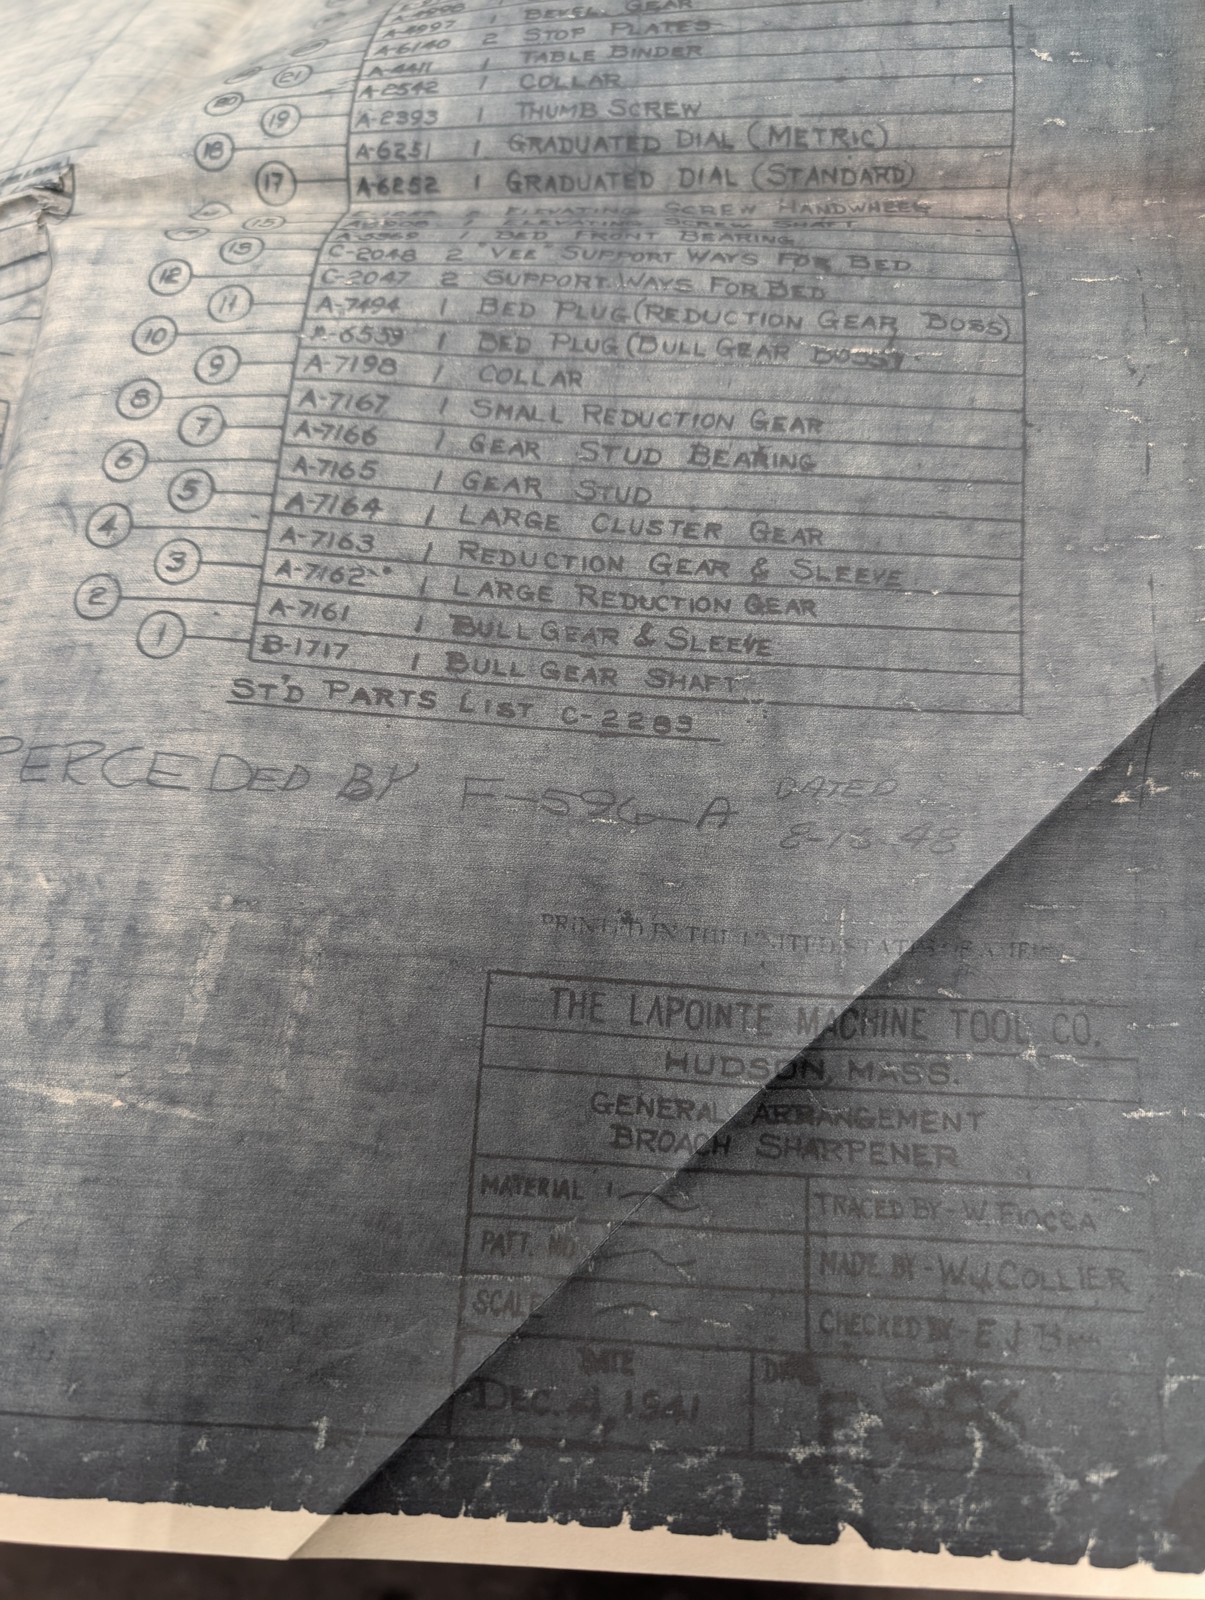 1 BEVEL GEAR
A-4997 2 STOP PLATES
A-6140 1 TABLE BINDER
21 A-4411 1 COLLAR
20 A-2542 1 THUMB SCREW
19 A-2393 1 GRADUATED DIAL (METRIC)
18 A-6251 1 GRADUATED DIAL (STANDARD)
17 A-6252 1
ELEVATING SCREW HANDWHEEL
15 SCREW SHAFT
1 BED FRONT BEARING
13 C-2048 2 "VEE" SUPPORT WAYS FOR BED
12 C-2047 2 SUPPORT WAYS FOR BED
11 A-7494 1 BED PLUG (REDUCTION GEAR BOSS)
10 A-6539 1 BED PLUG (BULL GEAR BOSS)
9 A-7198 1 COLLAR
8 A-7167 1 SMALL REDUCTION GEAR
7 A-7166 1 GEAR STUD BEARING
6 A-7165 1 GEAR STUD
5 A-7164 1 LARGE CLUSTER GEAR
4 A-7163 1 REDUCTION GEAR & SLEEVE
3 A-7162 1 LARGE REDUCTION GEAR
2 A-7161 1 BULL GEAR & SLEEVE
1 B-1717 1 BULL GEAR SHAFT
ST'D PARTS LIST C-2289
PERCEDED BY F-596-A DATED
8-13-48
PRINTED IN THE UNITED STATES OF AMERICA
THE LAPOINTE MACHINE TOOL CO.
HUDSON, MASS.
GENERAL ARRANGEMENT
BROACH SHARPENER
MATERIAL
TRACED BY - W. FIOCCA
PATT. NO.
MADE BY - W.J. COLLIER
SCALE
CHECKED BY - E J
DATE
DEC. 4, 1941